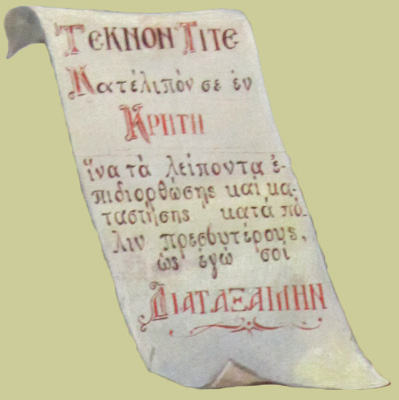 ΤΕΚΝΟΝ ΤΙΤΕ
Κατέλιπόν σε ἐν
ΚΡΗΤΗ
ἵνα τὰ λείποντα ἐ-
πιδιορθώσῃς καὶ κα-
ταστήσῃς κατὰ πό-
λιν πρεσβυτέρους,
ὡς ἐγώ σοι
ΔΙΑΤΑΞΑΜΗΝ